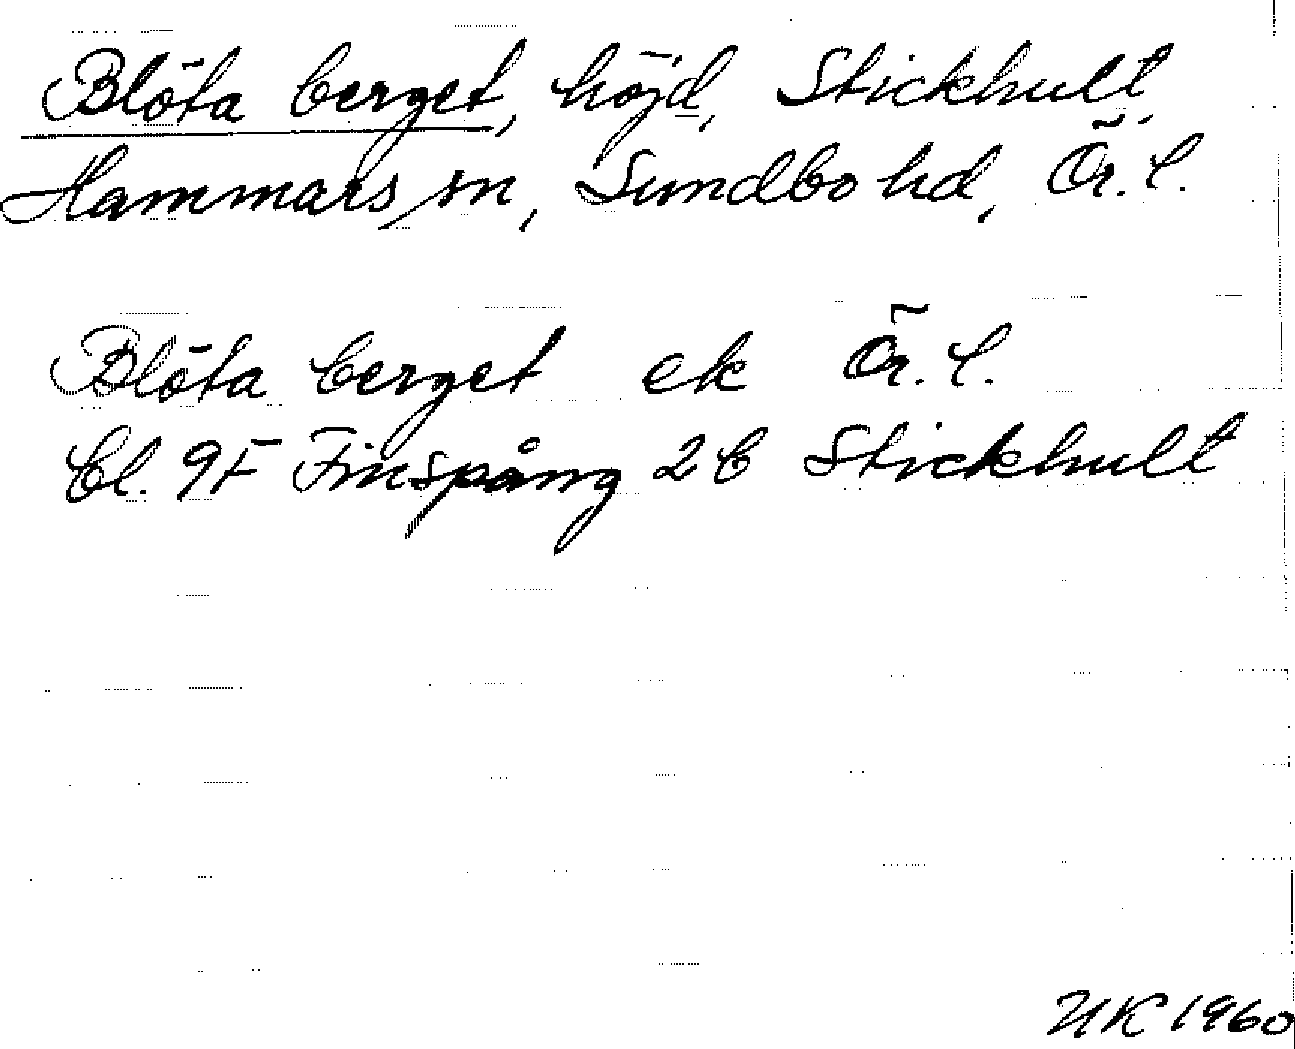 Blöta berget, höjd, Stickhult,
Hammars sn, Sundbo hd, Ör. l.
Blöta berget ek Ör. l.
bl. 9F Finspång 2b Stickhult
UK 1960